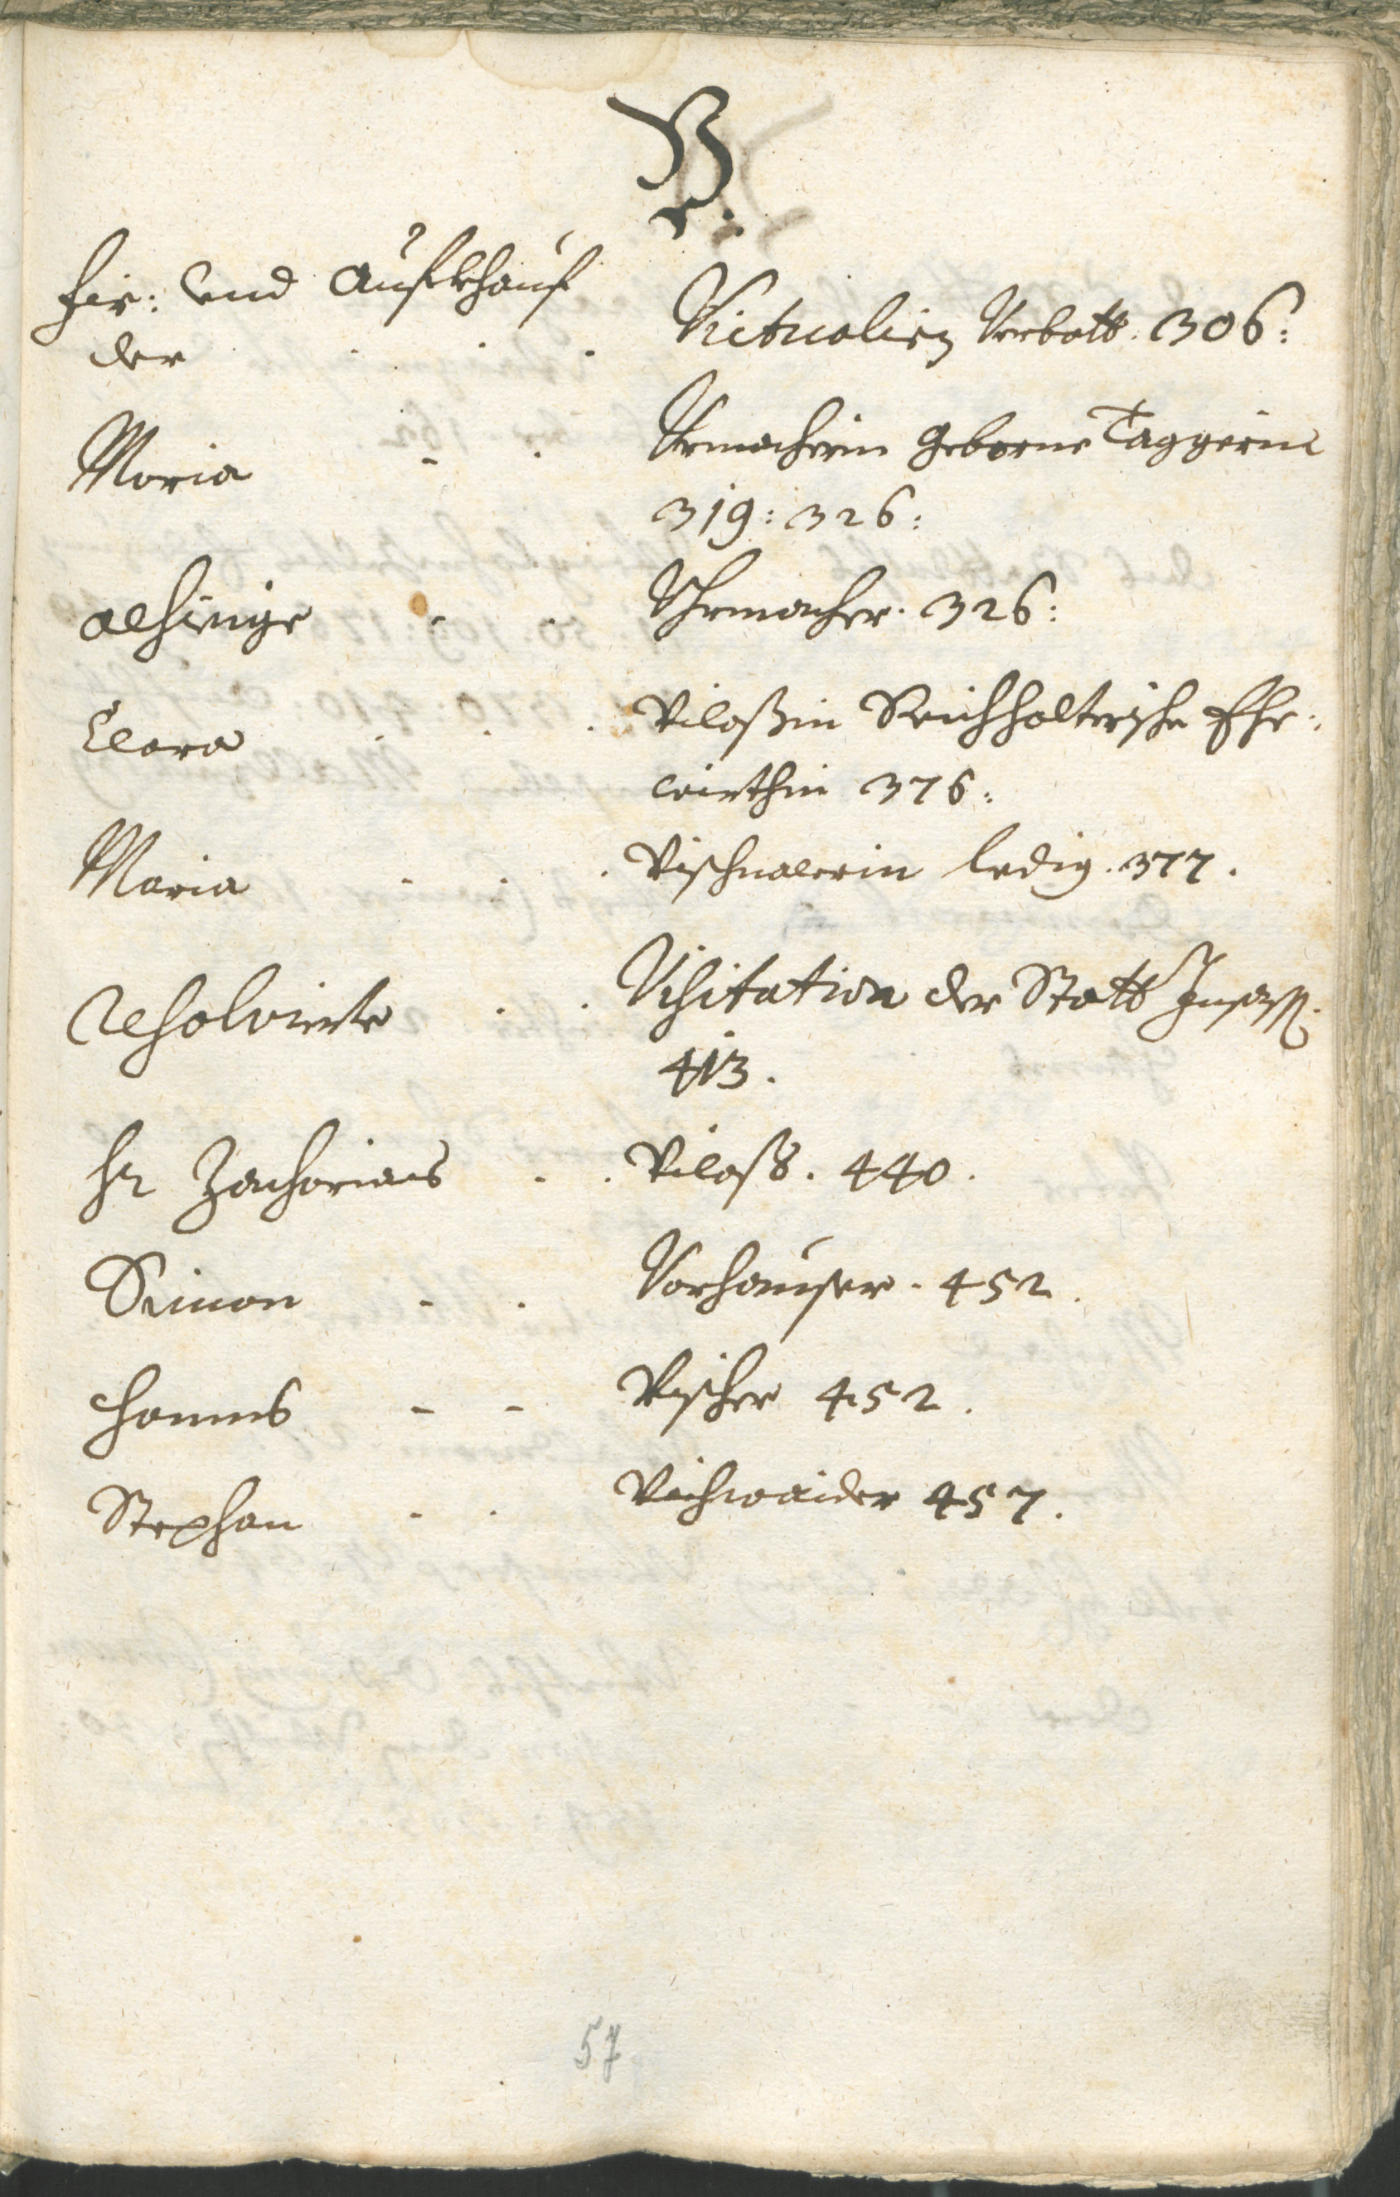 V.
Fir: und Aufkhauf
der . . . Victualien Verbott. 306:
Maria - . Vrmacherin geborne Taggerin
319: 326:
alhieige - . Vhrmacher. 326:
Clara . . . Vilaßin Reichhalterische Ehe-
wirthin 376:
Maria . . . Vischnalerin ledig. 377.
resolvierte . . Visitation der Statt
413.
Hr Zacharias . . Vilaß. 440.
Simon - . Vorhauser. 452.
Hanns - - Vischer 452.
Stephan . . Vichwaider 457.
57